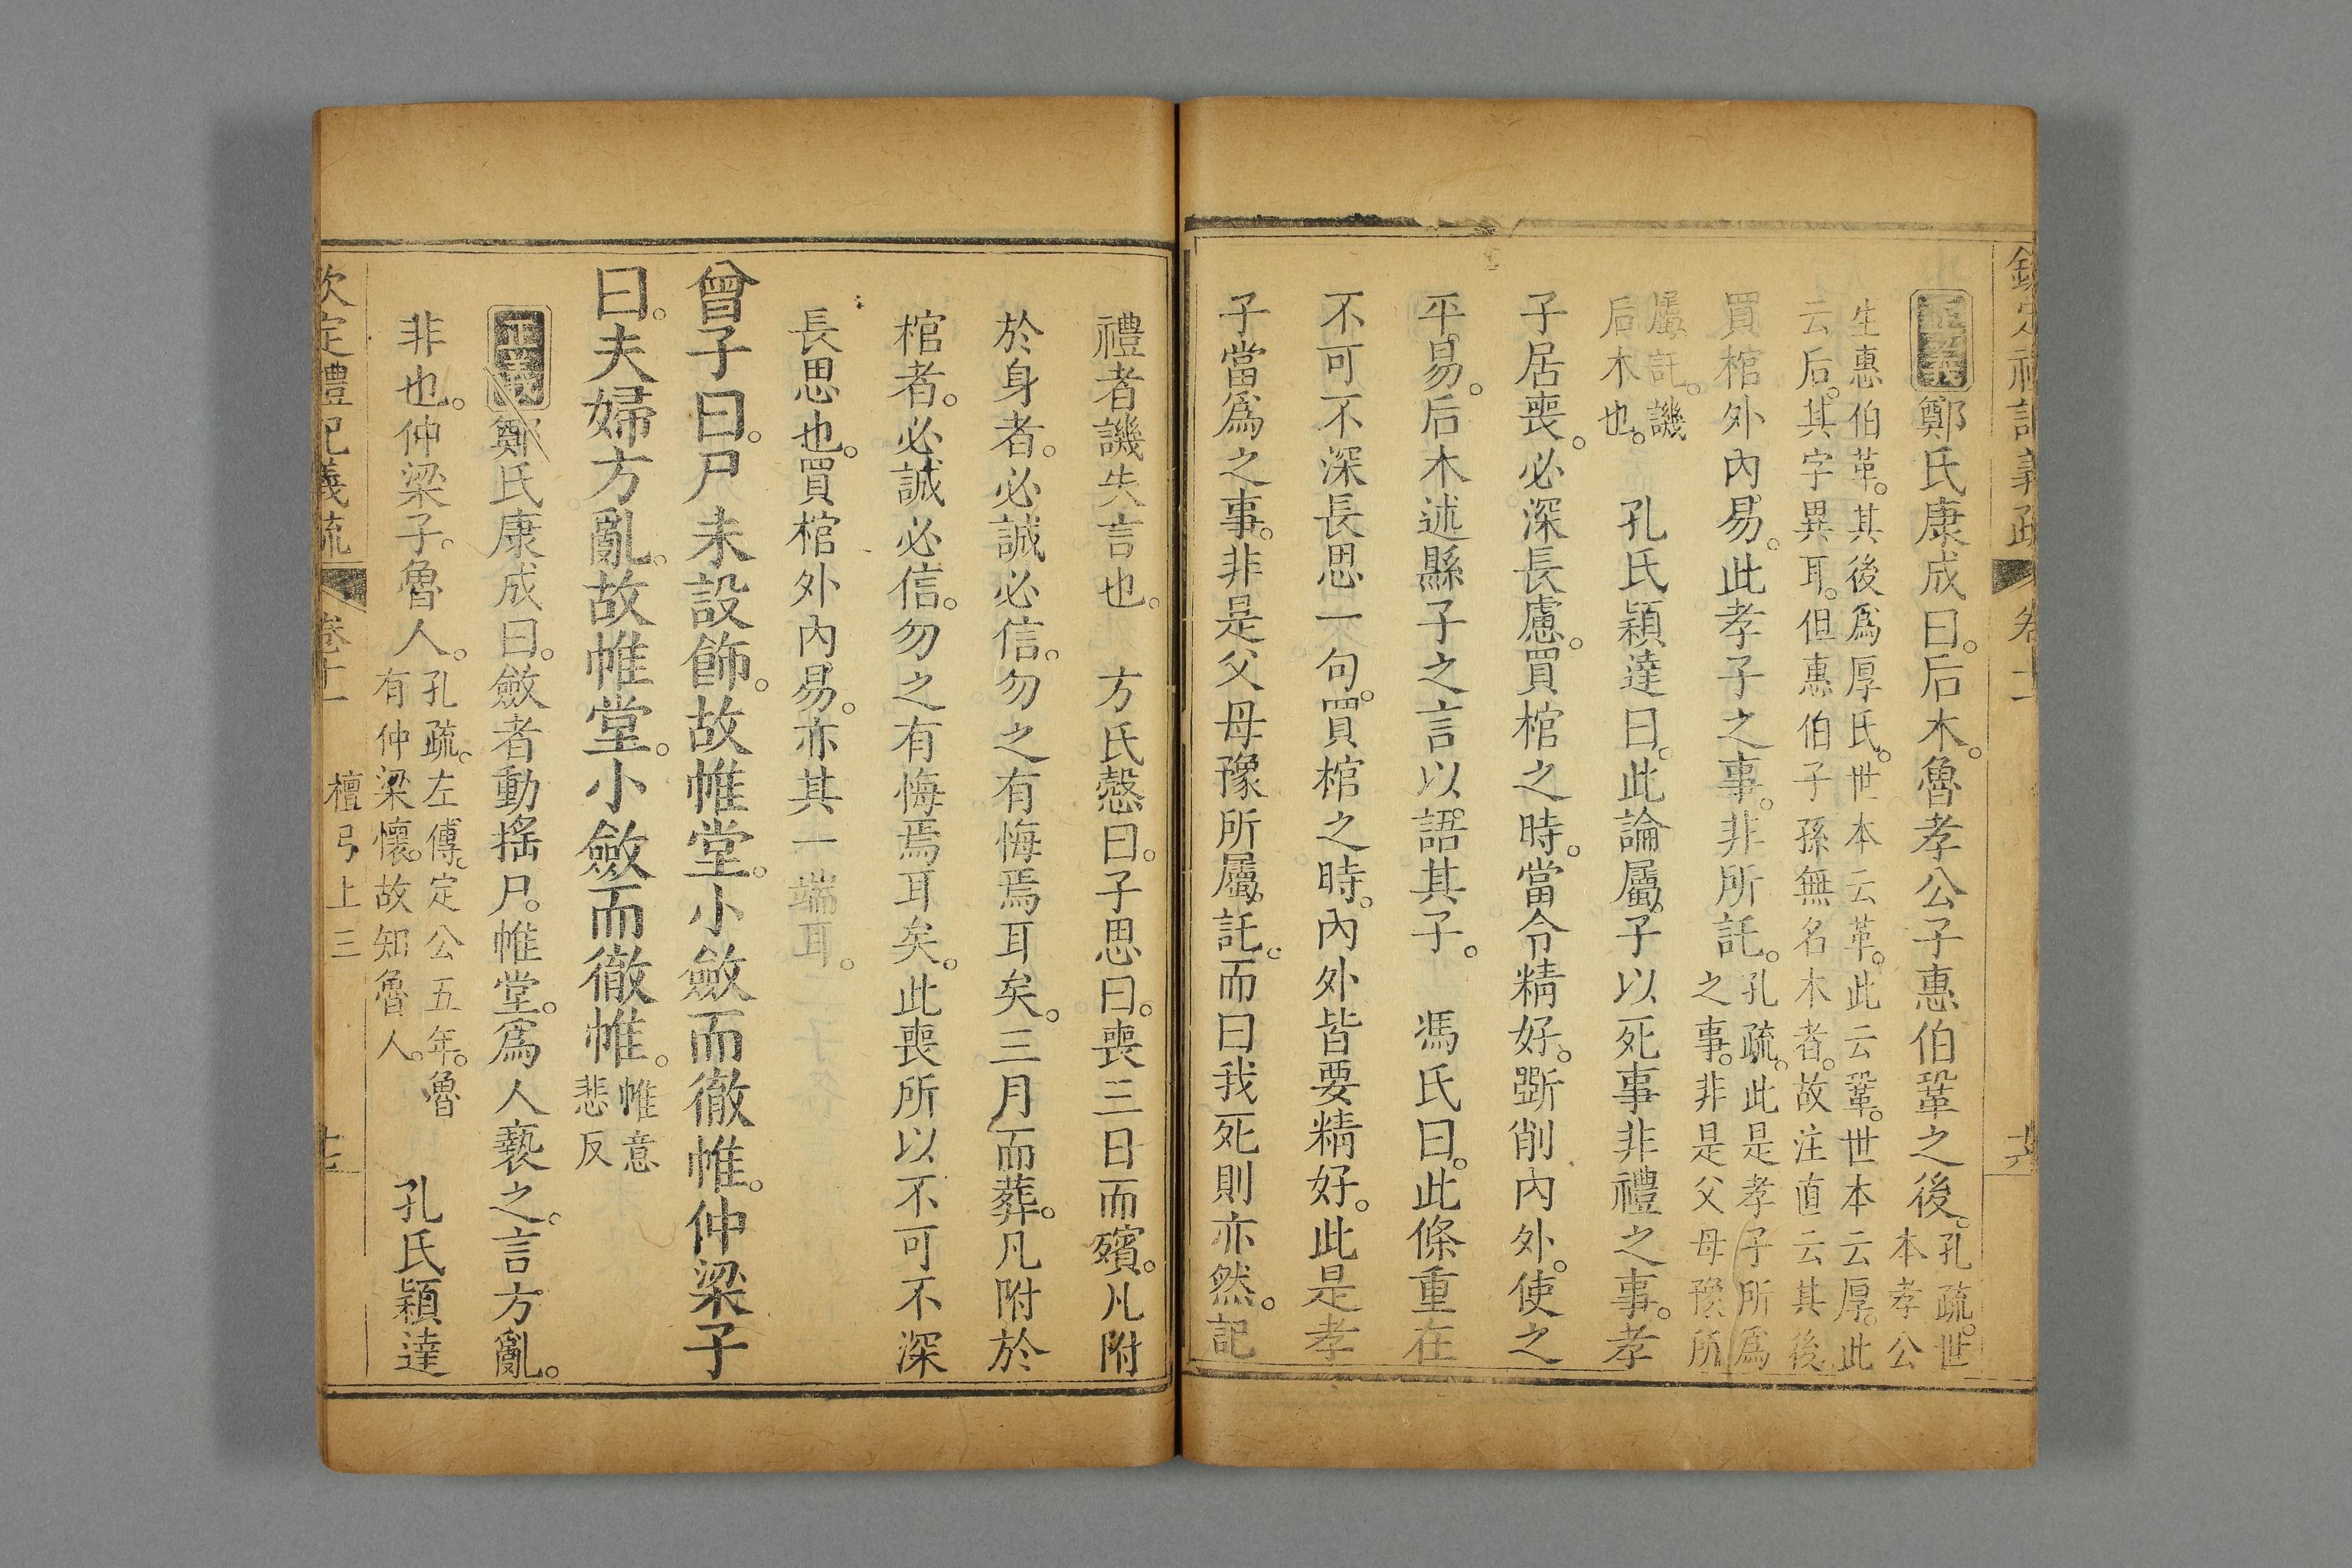 欽定禮記義疏 卷十一 六
正義鄭氏康成曰后木魯孝公子惠伯鞏之後孔疏世本孝公
生惠伯革其後爲厚氏世本云革此云鞏世本云厚此云后其字異耳但惠伯子孫無名木者故注直云其後
買棺外內易此孝子之事非所託孔疏此是孝子所爲之事非是父母豫所
屬託譏后木也 孔氏穎達曰此論屬子以死事非禮之事孝
子居喪必深長慮買棺之時當令精好斲削內外使之
平易后木述縣子之言以語其子 馮氏曰此條重在
不可不深長思一句買棺之時內外皆要精好此是孝
子當爲之事非是父母豫所屬託而曰我死則亦然記
禮者譏失言也 方氏慤曰子思曰喪三日而殯凡附
於身者必誠必信勿之有悔焉耳矣三月而葬凡附於
棺者必誠必信勿之有悔焉耳矣此喪所以不可不深
長思也買棺外內易亦其一端耳
曾子曰尸未設飾故帷堂小斂而徹帷仲梁子
曰夫婦方亂故帷堂小斂而徹帷帷意悲反
正義鄭氏康成曰斂者動搖尸帷堂爲人褻之言方亂
非也仲梁子魯人孔疏左傳定公五年魯有仲梁懷故知魯人 孔氏穎達
欽定禮記義疏 卷十一 檀弓上三 七